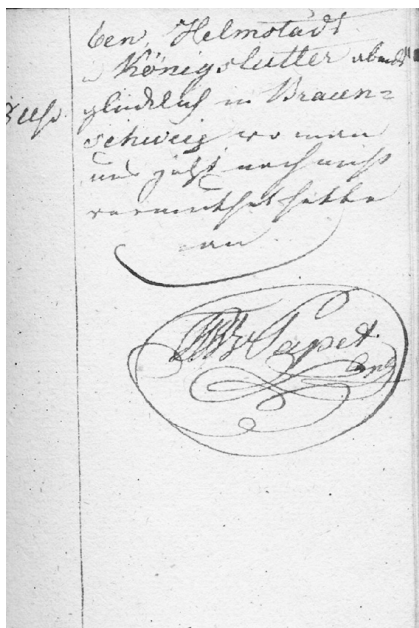 ben, Helmstädt
u Königslutter abends
glücklich in Braun=
schweig wo man
uns jetzt noch nicht
vermuthet hatte
an
Papet